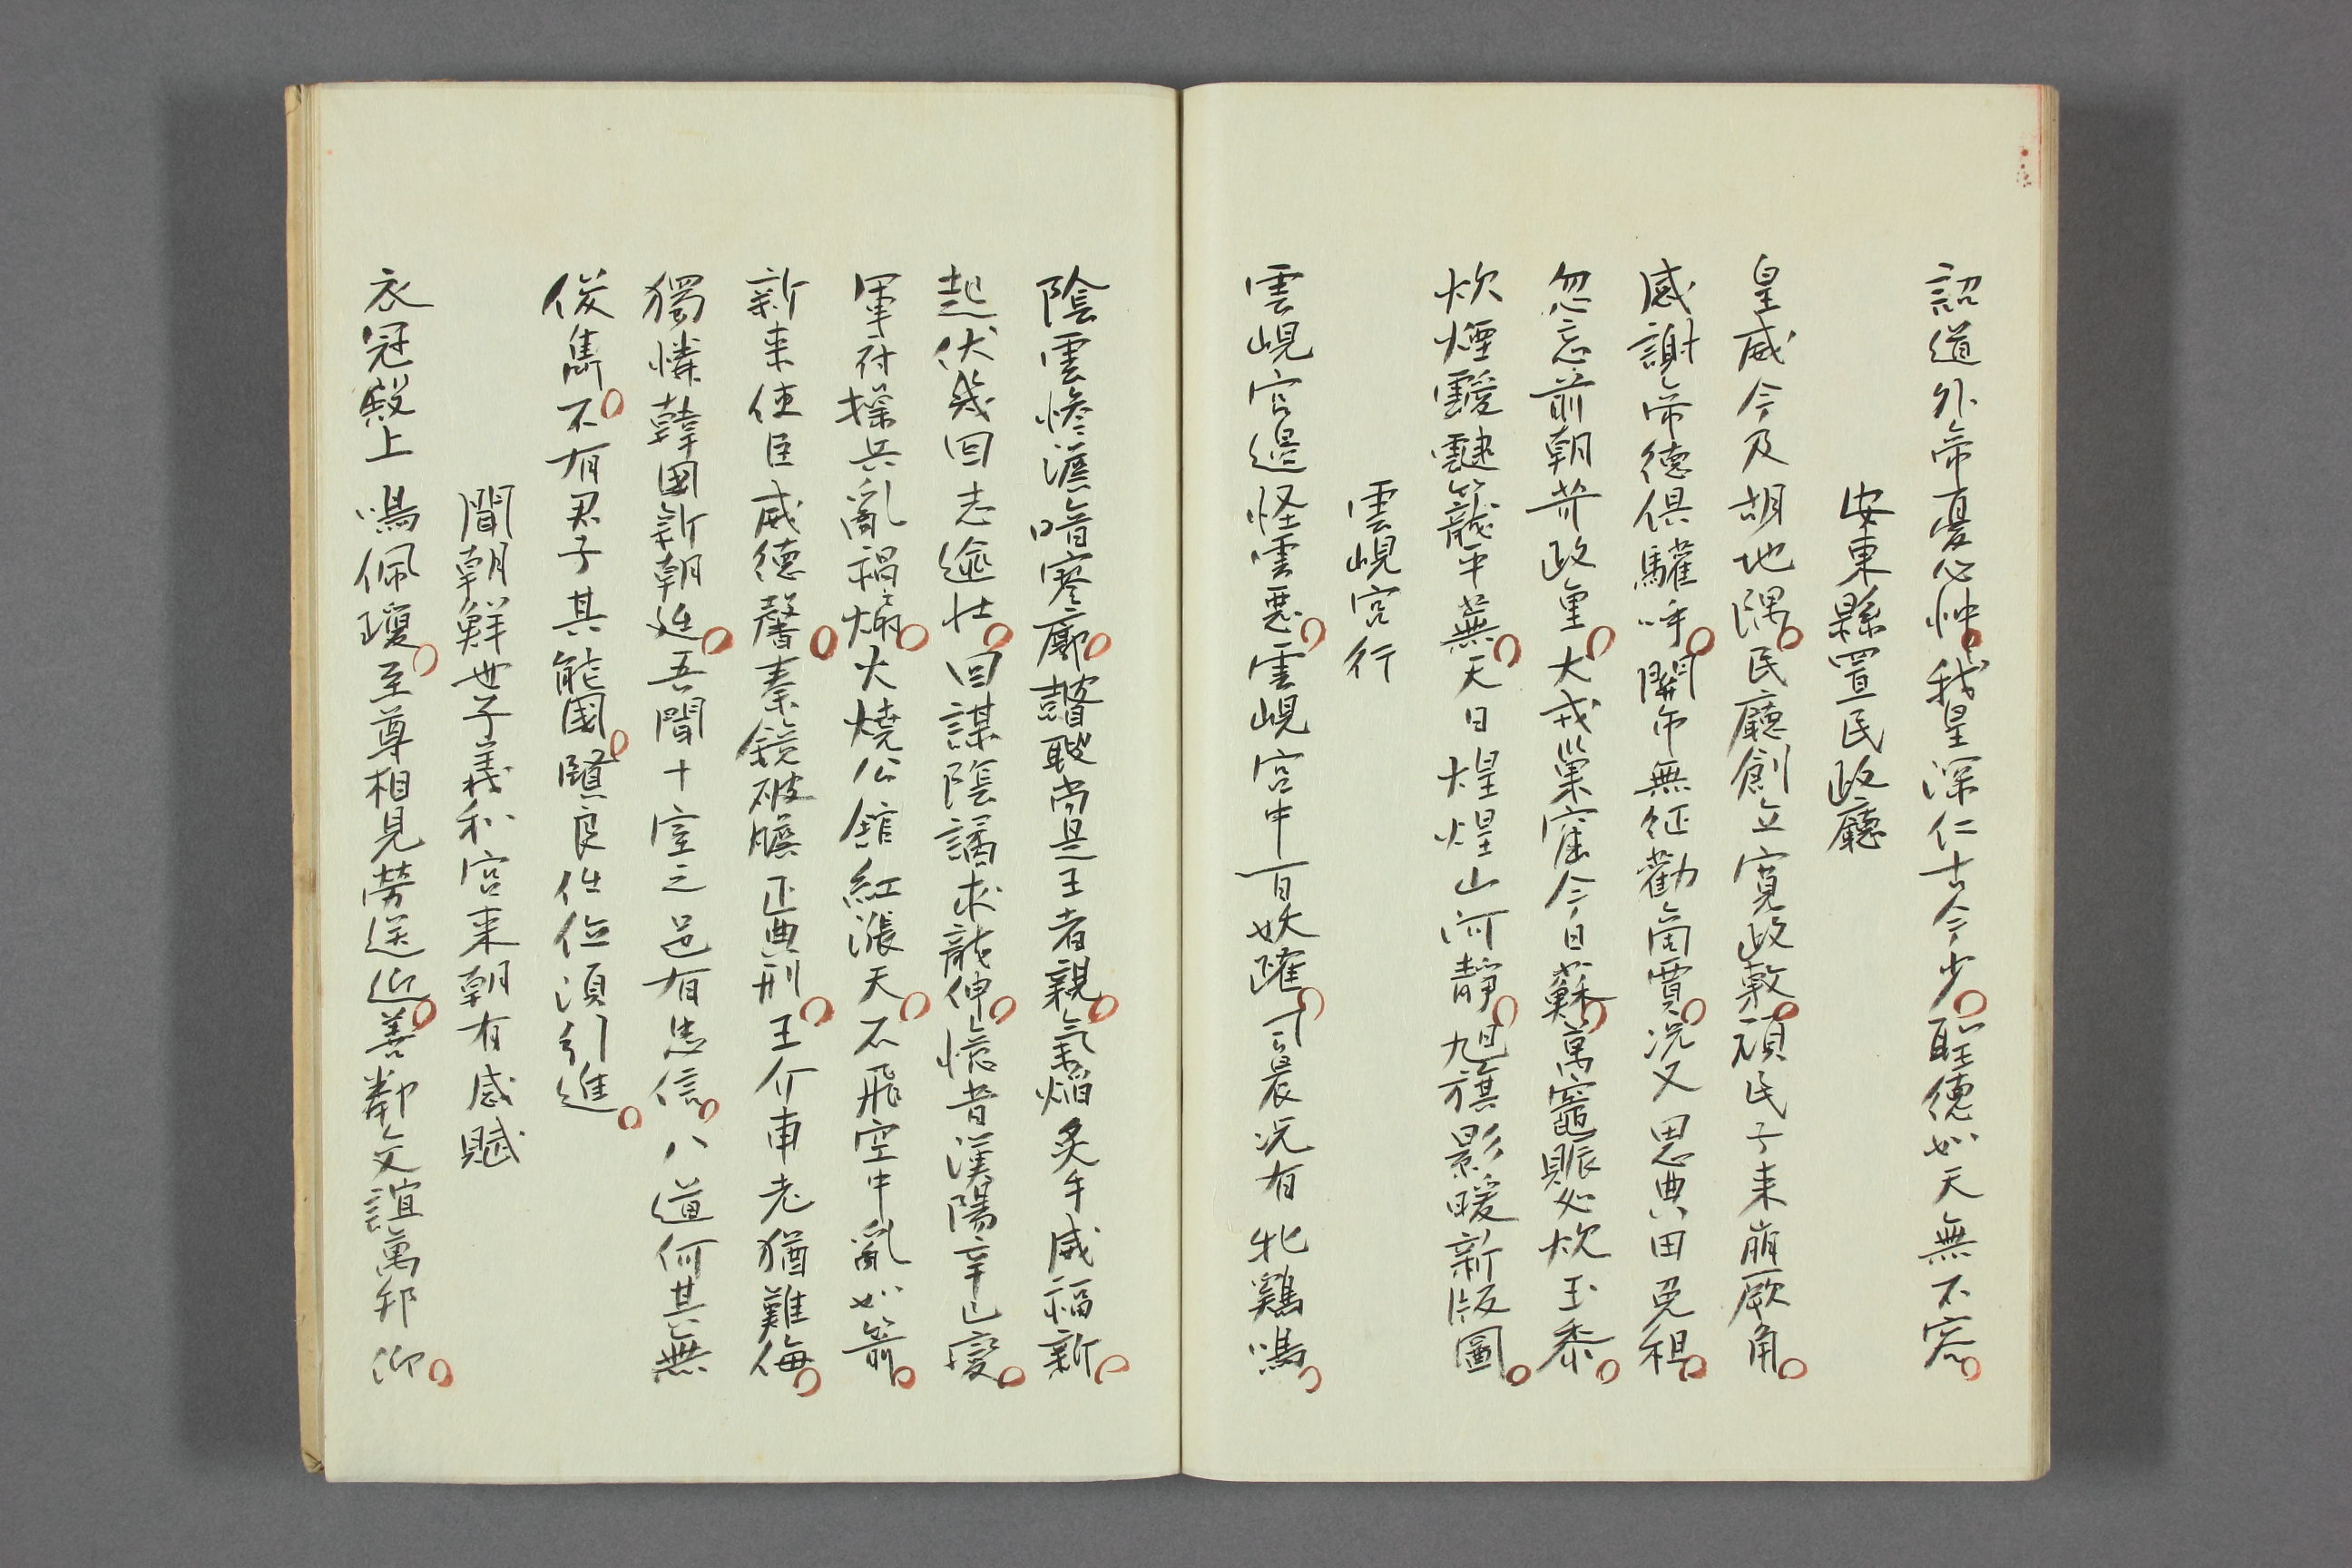 詔道外帝憂心忡我皇深仁古今少聖德如天無不容
安東縣置民政廳
皇威今及胡地隅民廳創立寬政敷頑民子来崩厥角
感謝帝德倶驩呼關市無征勸商賈況又恩典田免租
忽忘前朝苛政重犬戎巣窟今日蘇萬竈賑如炊玉黍
炊煙靉靆籠平蕪天日煌煌山河靜旭旗影暖新版圖
雲峴宮行
雲峴宮邊怪雲悪雲峴宮中百妖躍司晨況有牝鶏鳴
陰雲惨澹暗寥廓瞽聴尚是王者親氣焔炙手威福新
起伏幾回志逾壮回謀陰譎求龍伸憶昔漢陽辛巳変
軍府操兵亂禍煽火焼公館紅漲天石飛空中亂如箭
新来使臣威徳馨秦鏡破膽正典刑王介甫老猶難侮
獨憐韓國新朝廷吾聞十室之邑有忠信八道何其無
俊雋不有君子其能國賢良任位須引進
聞朝鮮世子義和宮来朝有感賦
衣冠殿上鳴佩瓊至尊相見勞送迎善鄰交誼萬邦仰